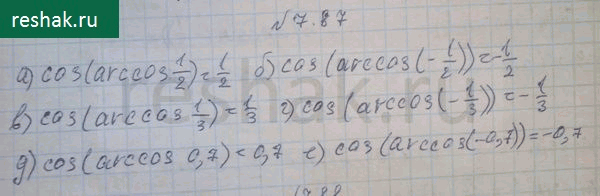 reshak.ru
№7.87
а) cos(arccos 1/2) = 1/2 б) cos(arccos(-1/2)) = -1/2
в) cos(arccos 1/3) = 1/3 г) cos(arccos(-1/3)) = -1/3
д) cos(arccos 0,7) = 0,7 е) cos(arccos(-0,7)) = -0,7
7.88